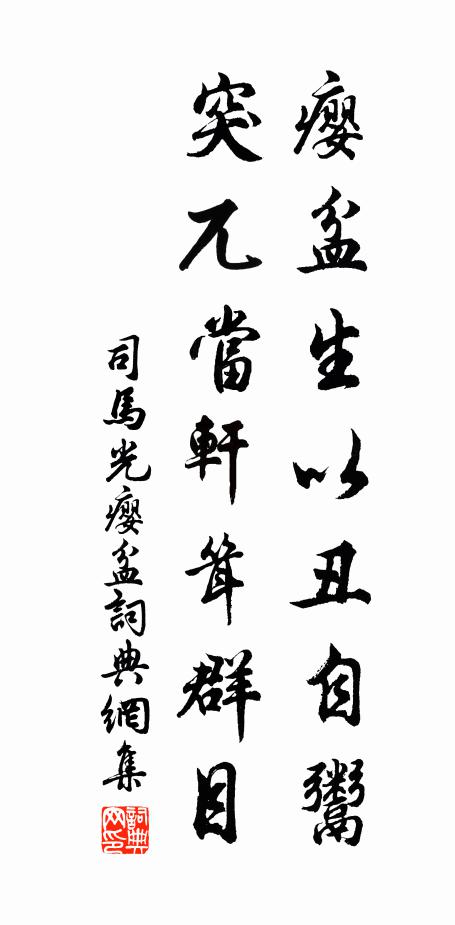 癭盆生以丑自鬻
突兀當軒耸群目
司馬光癭盆詞典網集
詞典网印